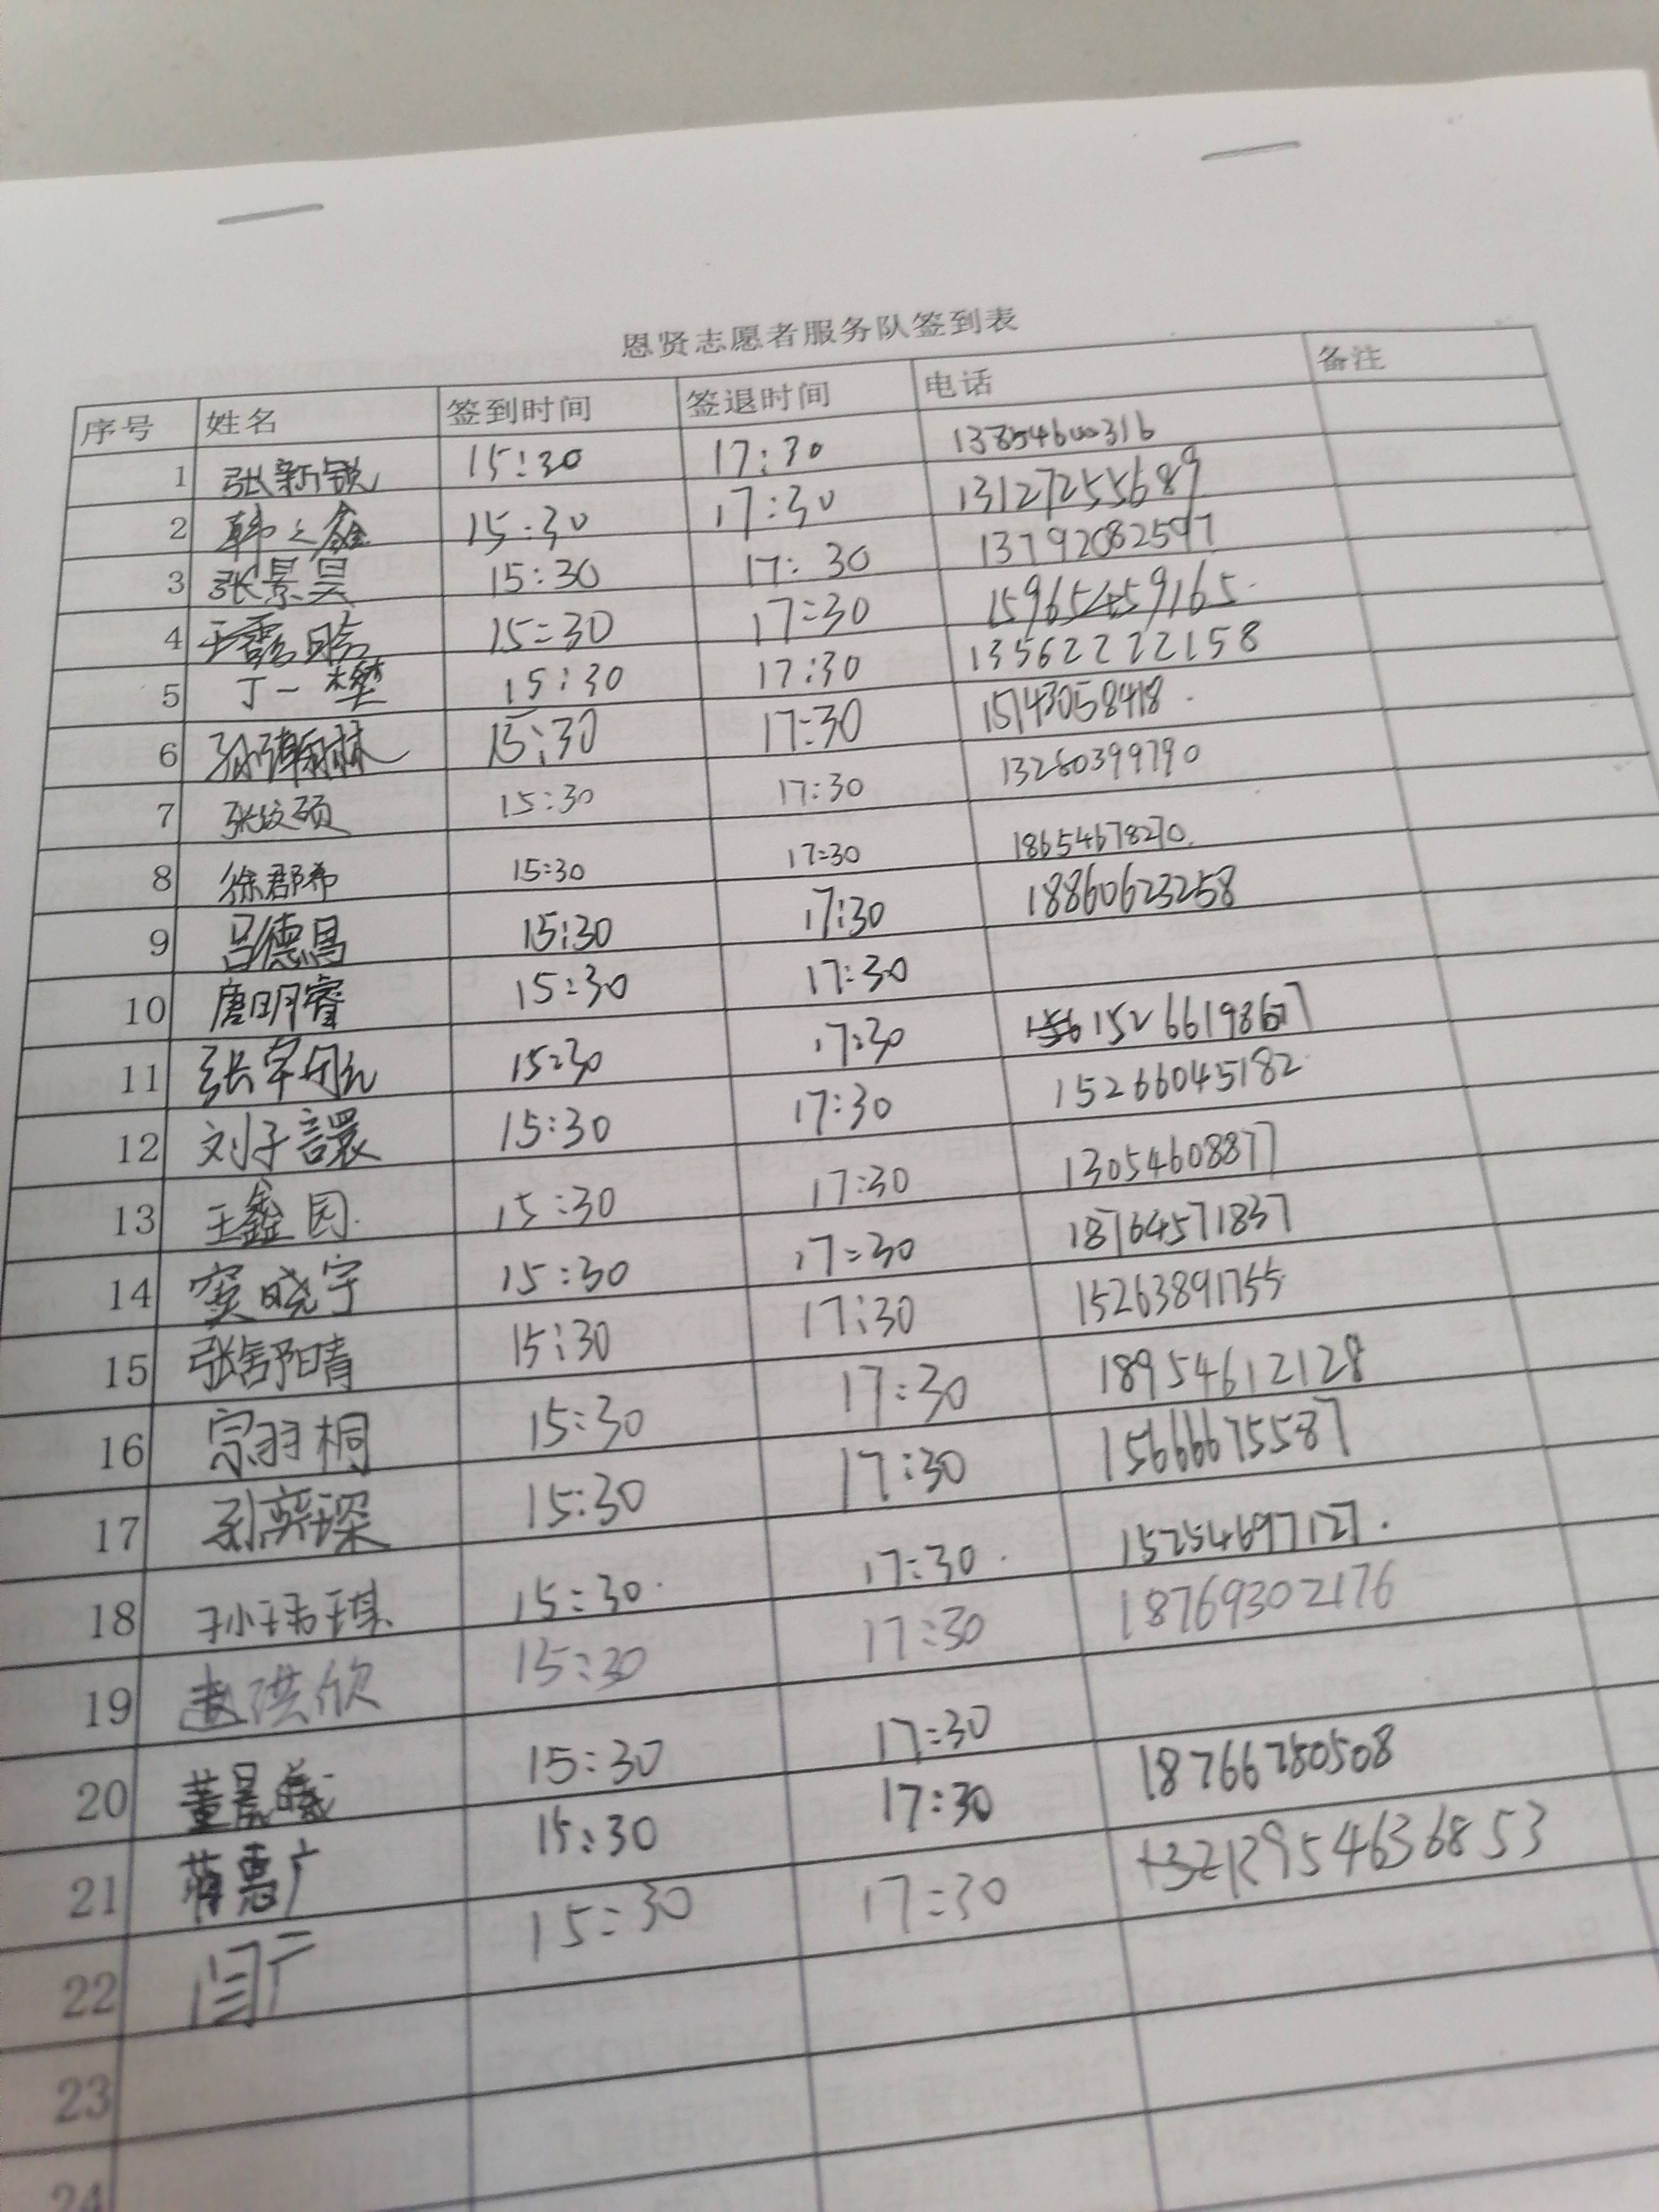 恩贤志愿者服务队签到表
序号 姓名 签到时间 签退时间 电话 备注
1 张新锐 15:30 17:30 13854600316
2 韩之鑫 15:30 17:30 13127255689
3 张景昊 15:30 17:30 13792082597
4 15:30 17:30 15965459165
5 丁一 15:30 17:30 13562222158
6 15:30 17:30 15143058418
7 15:30 17:30 13280399790
8 徐郡希 15:30 17:30 18654678270
9 吕德 15:30 17:30 18860623258
10 唐明睿 15:30 17:30
11 15:30 17:30
12 刘子譞 15:30 17:30 15266045182
13 王鑫园 15:30 17:30 13054608877
14 窦晓宇 15:30 17:30 18764571837
15 张舒阳晴 15:30 17:30 15263891755
16 宗羽桐 15:30 17:30 18954612128
17 15:30 17:30 15666675587
18 孙玮琪 15:30 17:30 15254697127
19 赵洪欣 15:30 17:30 18769302176
20 董晨曦 15:30 17:30
21 蒋惠广 15:30 17:30 18766780508
22 闫广 15:30 17:30
23
24